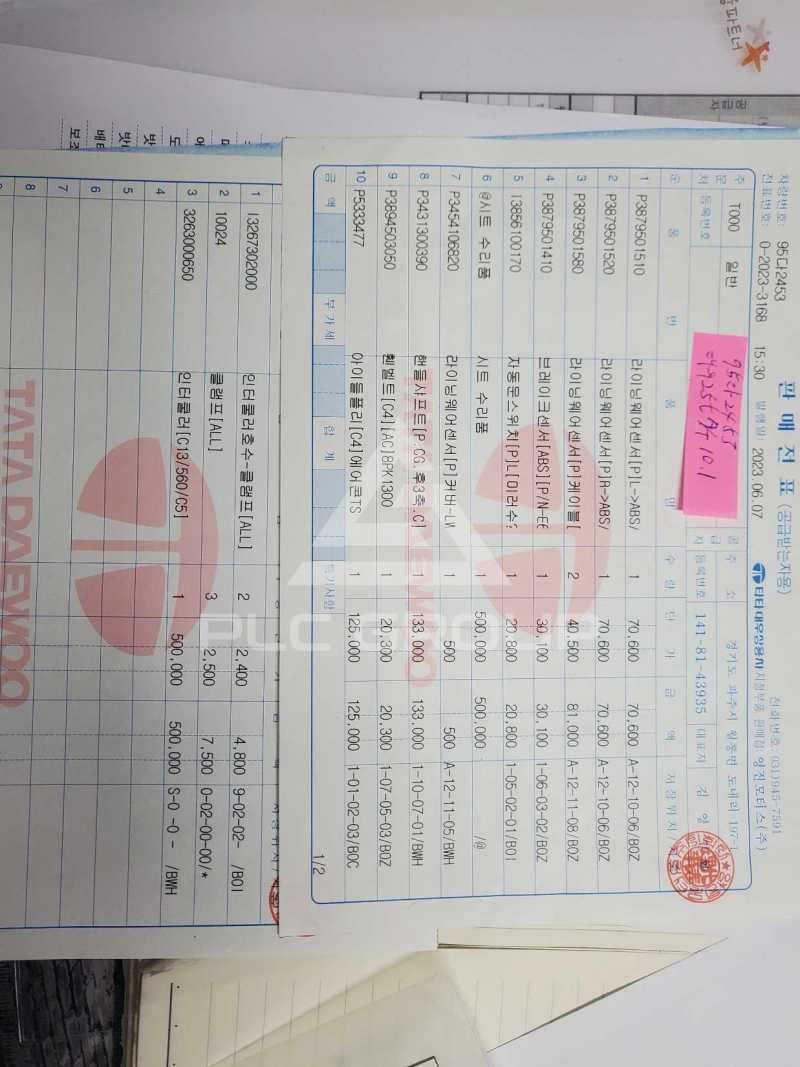 판 매 전 표 (공급받는자용)
차량번호: 95다2453
전화번호: (031)945-7591
전표번호: 0-2023-3168 15:30 발행일: 2023.06.07 타타대우상용차 지정부품 판매점: 영진모터스(주)
주 T000 일반
주 소 경기도 파주시 월롱면 도내리 197-1
등록번호
등록번호 141-81-43935 대표자 김 영
95다2455
순 품 번 품 명 수 량 단 가 금 액 저장위치/
1 P3879501510 라이닝웨어센서[P]L->ABS/ 1 70,600 70,600 A-12-10-06/BOZ
2 P3879501520 라이닝웨어센서[P]R->ABS/ 1 70,600 70,600 A-12-10-06/BOZ
3 P3879501580 라이닝웨어센서[P]케이블[ 2 40,500 81,000 A-12-11-08/BOZ
4 P3879501410 브레이크센서[ABS][P/N-EE 1 30,100 30,100 1-06-03-02/BOZ
5 I3856100170 자동문스위치[P]L[미러수? 1 20,800 20,800 1-05-02-01/BOI
6 @시트 수리품 시트 수리품 1 500,000 500,000 /@
7 P3454106820 라이닝웨어센서[P]커버-LW 1 500 500 A-12-11-05/BWH
8 P3431300390 핸들샤프트[P.CG.후3축.C] 1 133,000 133,000 1-10-07-01/BWH
9 P3894503050 휀벨트[C4][AC]8PK1300 1 20,300 20,300 1-07-05-03/BOZ
10 P5333477 아이들풀리[C4]에어콘TS 1 125,000 125,000 1-01-02-03/BOC
금 액 부가세 합 계 특기사항
1/2
1 I3287302000 인터쿨러호수-클램프[ALL] 2 2,400 4,800 9-02-02- /BOI
2 10024 클램프[ALL] 3 2,500 7,500 0-02-00-00/*
3 3263000650 인터쿨러[C]3/560/G5] 1 500,000 500,000 S-0 -0 - /BWH
4
5
6
7
8
TATA DAEWOO
PLC GROUP
공급자
파트너